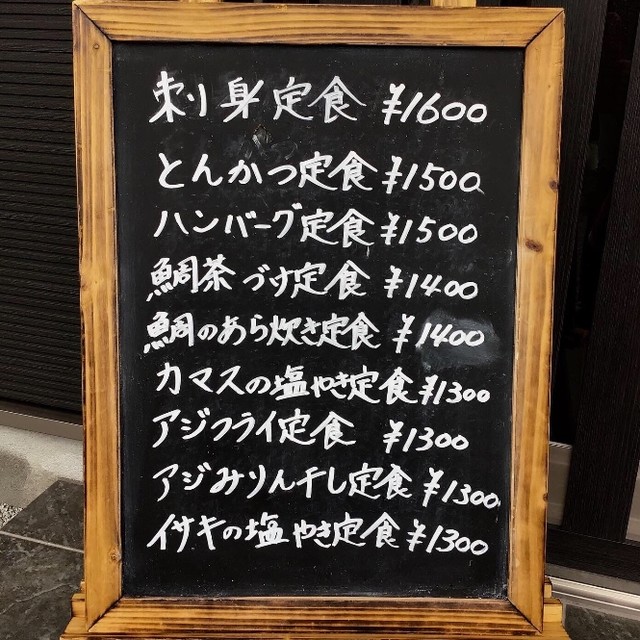 刺身定食 ¥1600
とんかつ定食 ¥1500
ハンバーグ定食 ¥1500
鯛茶づけ定食 ¥1400
鯛のあら炊き定食 ¥1400
カマスの塩やき定食 ¥1300
アジフライ定食 ¥1300
アジみりん干し定食 ¥1300
イサキの塩やき定食 ¥1300